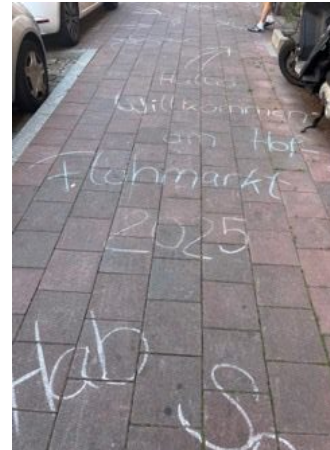 Hallo
Willkommen
am Hof
Flohmarkt
2025
Hab